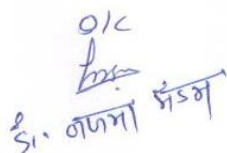 O/C
डॉ. नजमा मॅडम